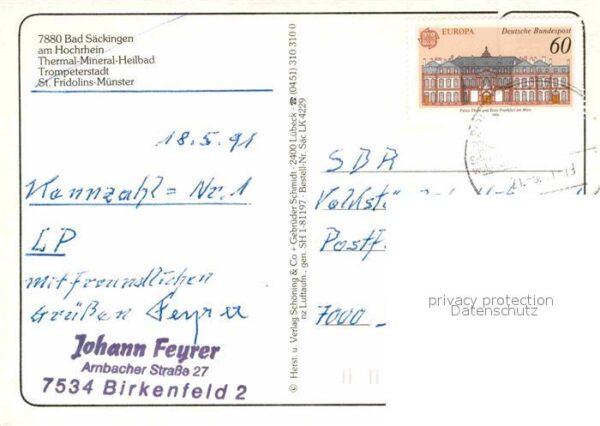 7880 Bad Säckingen
am Hochrhein
Thermal-Mineral-Heilbad
Trompeterstadt
St. Fridolins-Münster
18.5.91
Kennzahl = Nr. 1
LP
mit freundlichen
Grüßen Feyrer
Johann Feyrer
Arnbacher Straße 27
7534 Birkenfeld 2
© Herst. u. Verlag Schöning & Co + Gebrüder Schmidt · 2400 Lübeck · ☎ (04 51) 310 310 0
nz Luftaufn., gen. SH 1-81197 · Bestell-Nr. Säc LK 4229
EUROPA
Deutsche Bundespost
60
Palais Thurn und Taxis Frankfurt am Main
SDR
Postf
7000
privacy protection
Datenschutz